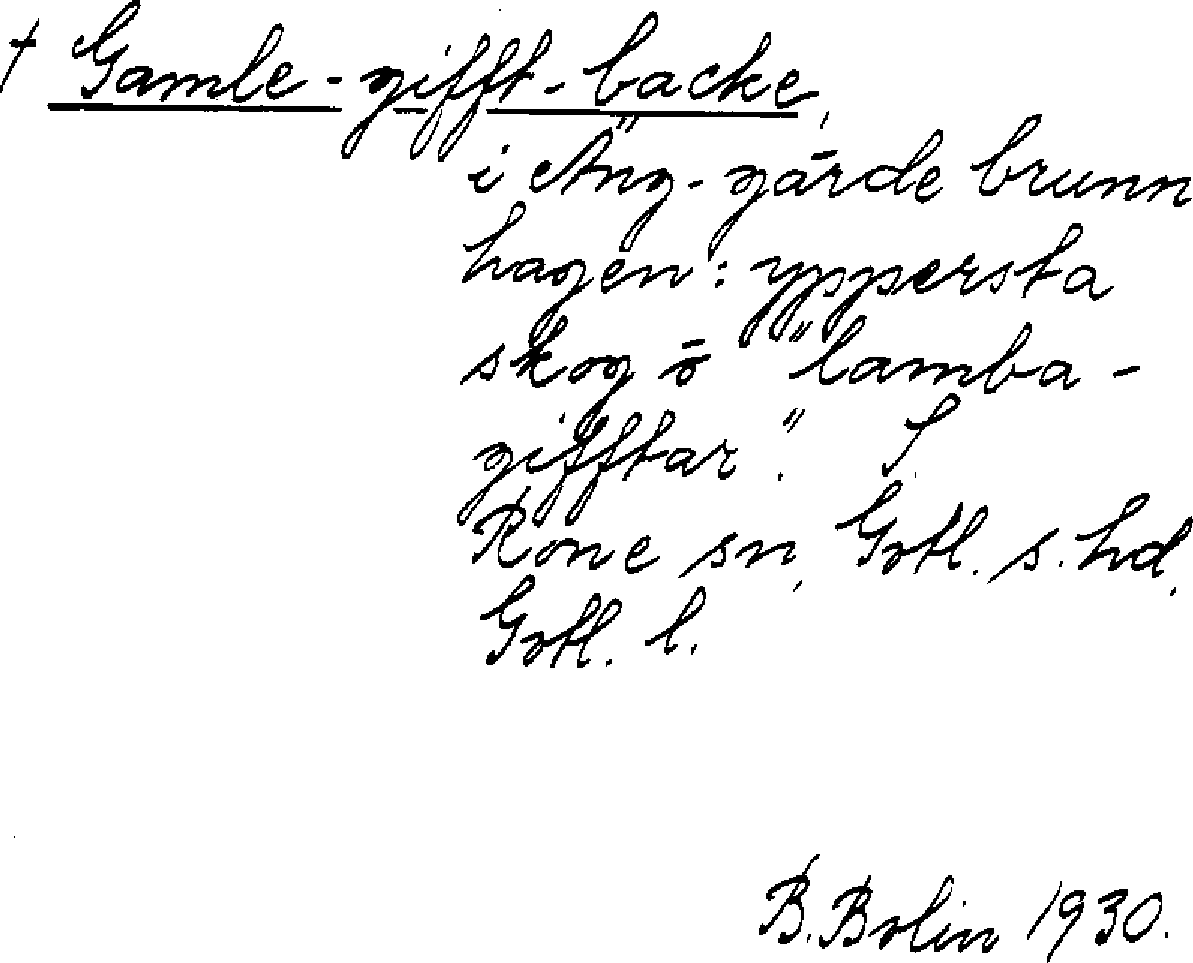 † Gamle-gifft-backe,
i Äng-gärde brunn
hagen: yppersta
skog ō "lamba-
gifftar". S.
Rone sn, Gotl. s. hd,
Gotl. l.
B. Bolin 1930.